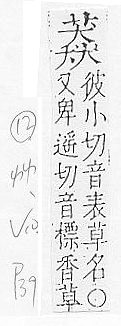 彼小切音表草名○
又卑遥切音標香草
⑫
艸、
P39